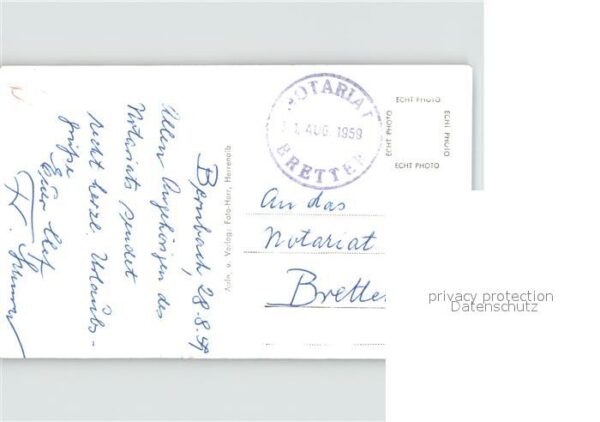 Bernbach, 28.8.59
Allen Angehörigen des
Notariats sendet
recht herzl. Urlaubs-
grüße
Euer
Aufn. u. Verlag: Foto-Harr, Herrenalb.
NOTARIAT
31. AUG. 1959
BRETTEN
ECHT PHOTO
ECHT PHOTO
ECHT PHOTO
ECHT PHOTO
An das
Notariat
Brette
privacy protection
Datenschutz